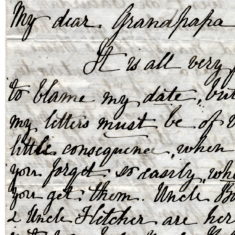 My dear Grandpapa
It is all very
to blame my date, but
my letters must be of
little consequence, when
you forget so easily, wh
you get them. Uncle
& Uncle Fletcher are her